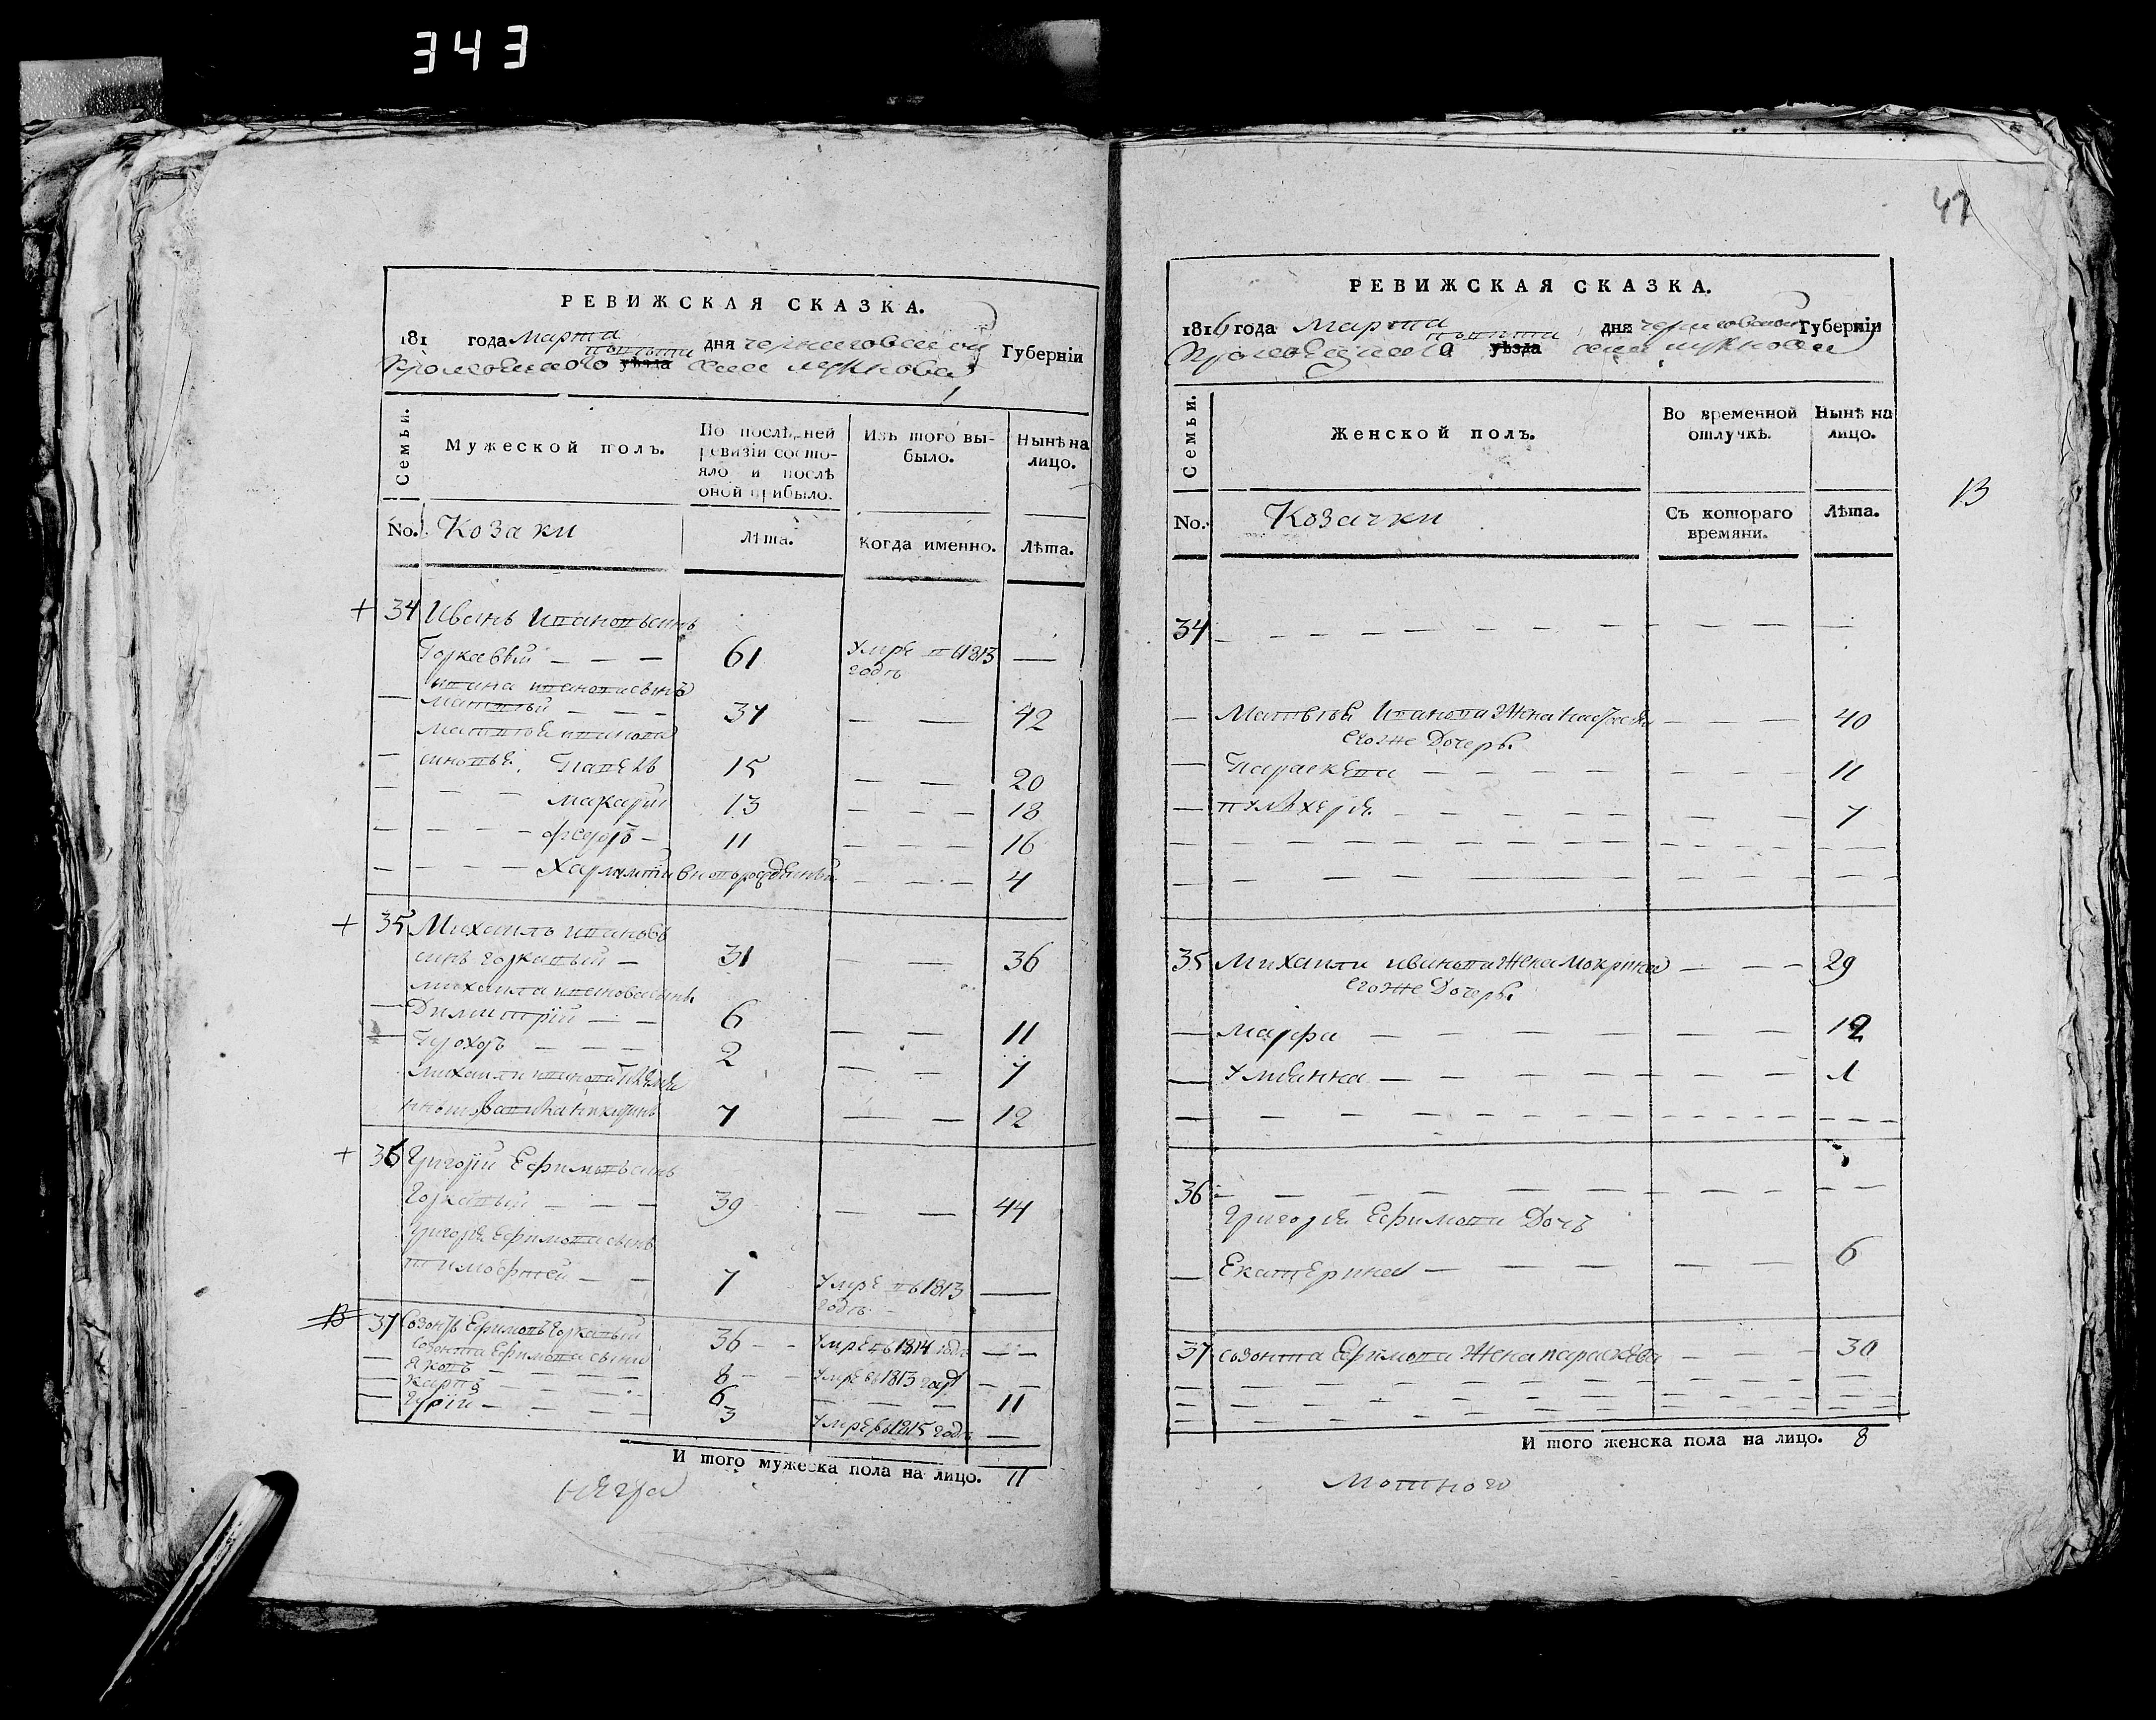 343
РЕВИЖСКАЯ СКАЗКА.
181 года марта дня черниговской Губерніи
уѣзда села
Семьи.
Мужеской полъ.
По послѣдней ревизіи состо-яло и послѣ оной прибыло.
Изъ того вы-было.
Нынѣ на лицо.
No. Козаки
Лѣта.
Когда именно.
Лѣта.
+ 34 Иванъ Ивановъ синъ
Горкавый — — — 61 Умре в 1813 —
годѣ
Ивана Иванова сынъ
— Матвѣй — — — 37 — — 42
Матвѣя Иванова
— синовья. Павелъ 15 — — 20
— — — Макарій 13 — — — 18
— — — — Федоръ — 11 — — — 16
— — — — Харлампій вновьрожденный — — — 4
+ 35 Михаилъ Ивановъ
синъ Горкавый — 31 — — 36
Михаила Иванова синъ
— Димитрій — — 6 — — 11
— Прохоръ — — — 2 — — 7
Михаила Иванова
7 — — 12
+ 36 Григорій Ефимовъ синъ
Горкавый — — — 39 — — 44
Григорія Ефимова сынъ
Тимофей — — 7 Умре в 1813 —
годѣ
В 37 Созонтъ Ефимовъ Горкавый 36 — — Умре въ 1814 годѣ — —
Созонта Ефимова сыни
— Яковъ — — — — 8 — — Умре въ 1813 годѣ — —
— Карпъ — — — — 6 — — — 11
— Гурій — — — — 3 Умре въ 1815 годѣ —
И того мужеска пола на лицо. 11
47
РЕВИЖСКАЯ СКАЗКА.
1816 года Марта дня черниговской Губерніи
уѣзда села
Семьи.
Женской полъ.
Во временной отлучкѣ.
Нынѣ на лицо.
В
No. Козачки
Съ котораго времяни.
Лѣта.
34 — — — — — — — — — — — —
— Матвѣя Иванова Жена Настасія — — — 40
Его же Дочеръ.
— Параскева — — — — — — — — 11
— Пулхерія — — — — — — — 7
35 Михаила Иванова Жена Мокрина — — — 29
Его же Дочеръ.
— Марфа — — — — — — — 12
— Улиянна — — — — — — — 1
36 — — — — — — — — — — —
Григорія Ефимова Дочъ
— Екатерина — — — — — — 6
37 Созонта Ефимова Жена Параскева — — — 30
И того женска пола на лицо. 8